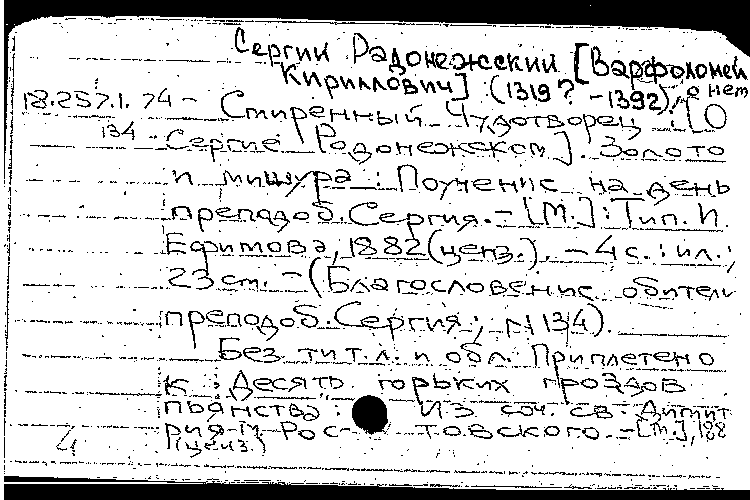 Сергий Радонежский [Варфоломей
Кириллович] (1319? - 1392), о нем
18.257.1.74 - Смиренный Чудотворец : [О
134 - Сергие Радонежском]. Золото
и мишура : Поучение на день
преподоб. Сергия. - [М.] : Тип. И.
Ефимова, 1882 (ценз.). - 4 с. : ил. ;
23 см. - (Благословение обители
преподоб. Сергия ; № 134).
Без тит. л. и обл. Приплетено
к : Десять горьких гроздов
пьянства : Из соч. св. Димит
рия м. Ростовского. - [М.], 188
4 (ценз.)